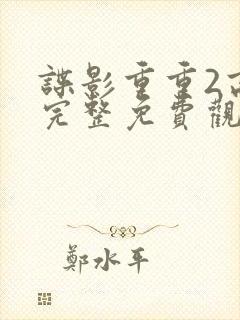 諜影重重2
完整免費觀
鄭水平